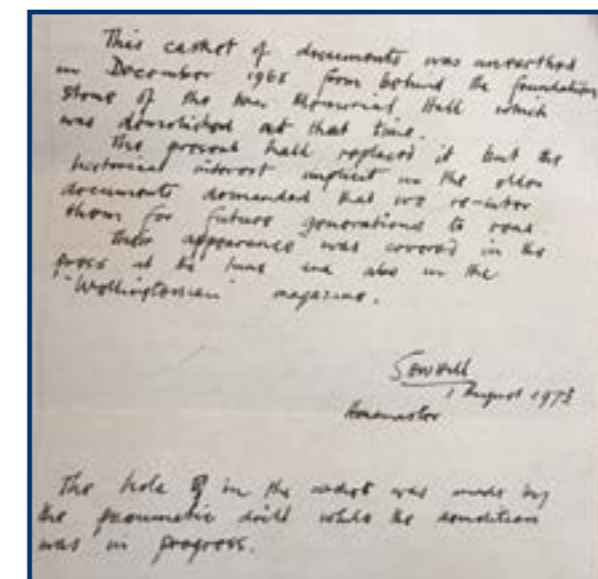 This casket of documents was unearthed
in December 1968 from behind the foundation
stone of the War Memorial Hall which
was demolished at that time.
The present hall replaced it but the
historical interest implicit in the older
documents demanded that we re-inter
them for future generations to read.
Their appearance was covered in the
press at the time and also in the
"Wellingtonian" magazine.
1 August 1973
Headmaster
The hole in the casket was made by
the pneumatic drill while the demolition
was in progress.